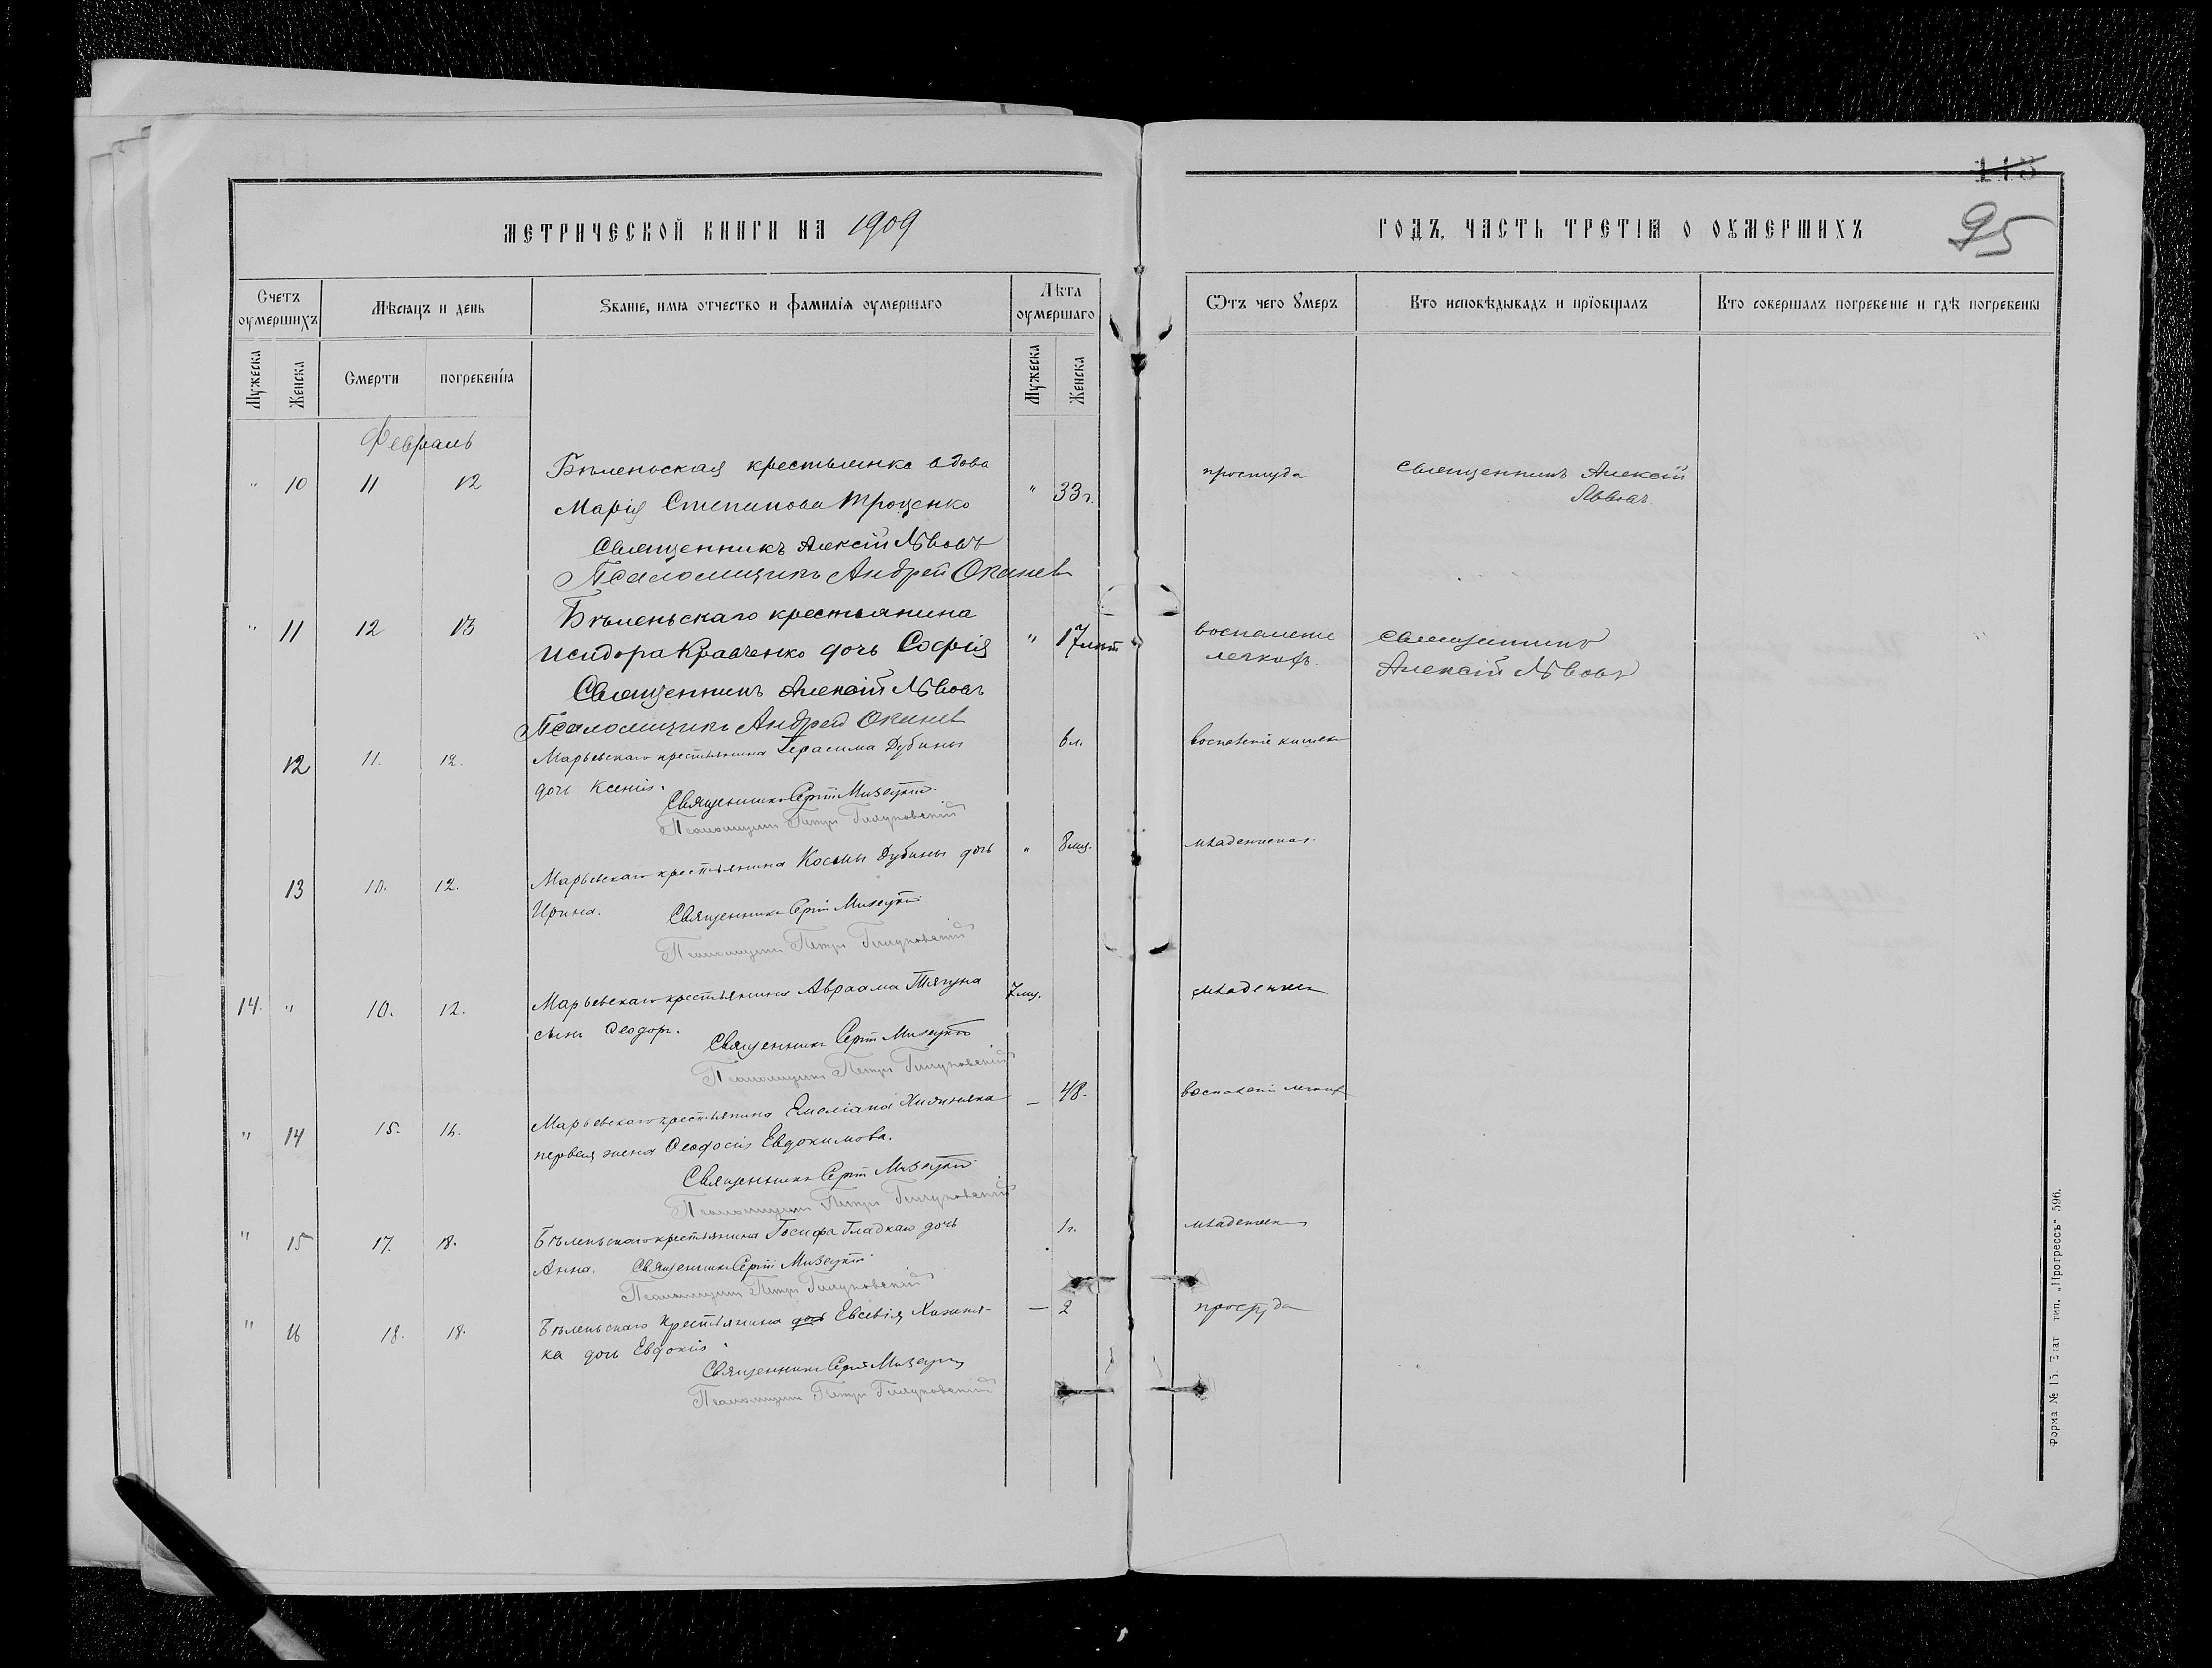 113
95
МЕТРИЧЕСКОЙ КНИГИ НА 1909
ГОДЪ, ЧАСТЬ ТРЕТІЯ О ОУМЕРШИХЪ
Счетъ оумершихъ
Мѣсяцъ и день
Званіе, имя отчество и фамилія оумершаго
Лѣта оумершаго
Отъ чего умеръ
Кто исповѣдывалъ и пріобщалъ
Кто совершалъ погребеніе и гдѣ погребены
Мужеска
Женска
Смерти
погребенія
Мужеска
Женска
Февраль
" 10 11 12 Бѣленьская крестьянка вдова " 33 г. простуда Священникъ Алексій
Марія Степанова Троценко Львовъ
Священникъ Алексій Львовъ
Псаломщикъ Андрей
" 11 12 13 Бѣленьскаго крестьянина " 17 лѣт воспаленіе Священникъ
Исидора Кравченко дочь Софія легкихъ. Алексій Львовъ
Священникъ Алексій Львовъ
Псаломщикъ Андрей
12 11. 12. Марьевскаго крестьянина Герасима Дубины 6 л. воспаленіе кишек
дочь Ксенія.
Священникъ Сергій
Псаломщикъ Петръ
13 10. 12. Марьевскаго крестьянина Космы Дубины дочь " 8 мц. младенческая.
Ирина. Священникъ Сергій
Псаломщикъ Петръ
14. " 10. 12. Марьевскаго крестьянина Авраама Тягуна 7 мц. младенческ
сынъ Ѳеодоръ.
Священникъ Сергій
Псаломщикъ Петръ
" 14 15. 16. Марьевскаго крестьянина Емеліана — 48. воспаленіе легких
первая жена Ѳеодосія Евдокимова.
Священникъ Сергій
Псаломщикъ Петръ
" 15 17. 18. Бѣленьскаго крестьянина Іосифа Гладкаго дочь 1 г. младенческ
Анна. Священникъ Сергій
Псаломщикъ Петръ
" 16 18. 18. Бѣленьскаго крестьянина дочь Евсевія Хижня- — 2 простуда
ка дочь Евдокія.
Священникъ Сергій
Псаломщикъ Петръ
Форма № 15. Екат. тип. „Прогрессъ" 596.